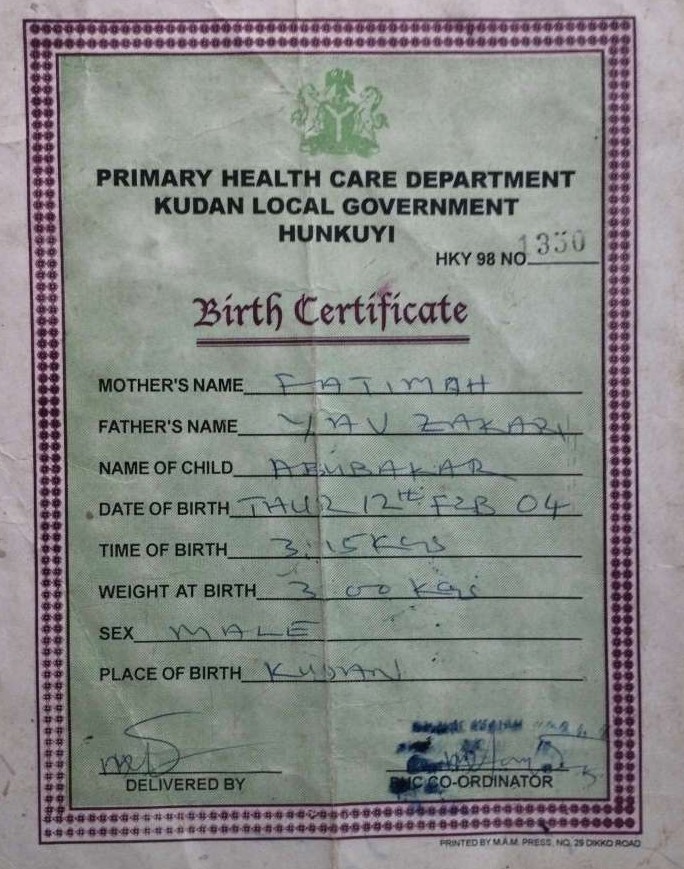 PRIMARY HEALTH CARE DEPARTMENT
KUDAN LOCAL GOVERNMENT
HUNKUYI
HKY 98 NO 1350
Birth Certificate
MOTHER'S NAME FATIMAH
FATHER'S NAME YAU ZAKARI
NAME OF CHILD ABUBAKAR
DATE OF BIRTH THUR 12th FEB 04
TIME OF BIRTH 3:15Kgs
WEIGHT AT BIRTH 3 00 Kgs
SEX MALE
PLACE OF BIRTH KUDAN
DELIVERED BY
PHC CO-ORDINATOR
PRINTED BY M.A.M. PRESS, NO. 29 DIKKO ROAD